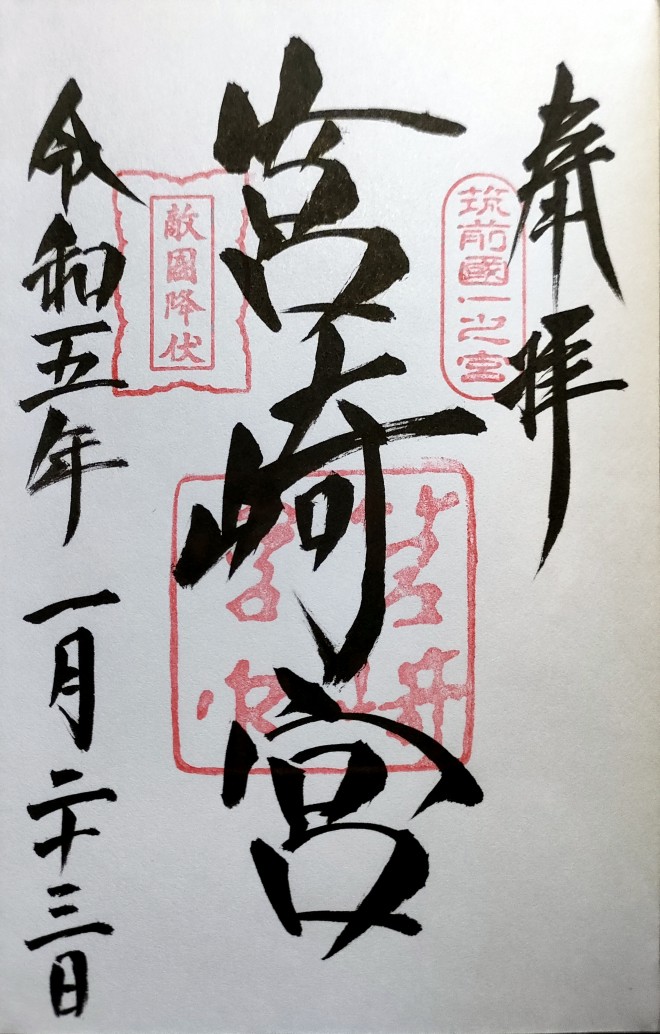 奉拝
筑前國一之宮
筥崎宮
敵國降伏
令和五年一月二十三日